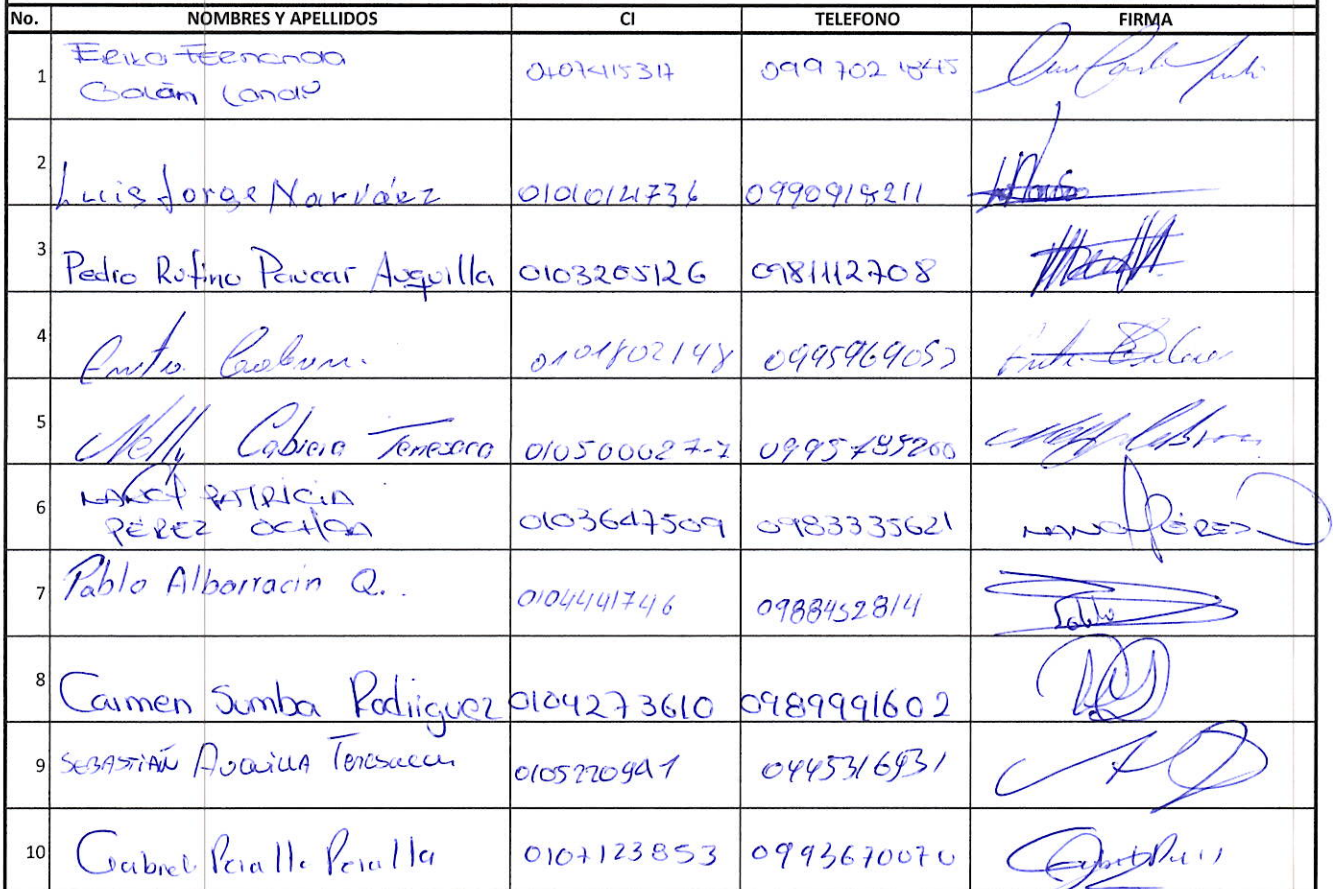 No. NOMBRES Y APELLIDOS CI TELEFONO FIRMA
1 Erika Fernanda
Galán Landi 0107415317 099 702 1845
2 Luis Jorge Narváez 0990918211
3 Pedro Rufino Paucar Auquilla 0103205126 0981112708
4 0101802148
5 Nelly Cabrera Tenesaca 010500027-7 0995785200
6 NANCY PATRICIA
PÉREZ OCHOA 0103647509 0983335621 NANCY PÉREZ
7 Pablo Albarracin Q.. 0104441746 0988452814 Pablo
8 Carmen Sumba Rodriiguez 0104273610 0989991602
9 SEBASTIÁN AUQUILLA Tenesaca
10 Gabriel Peralta Peralta 0107123853 0993670070